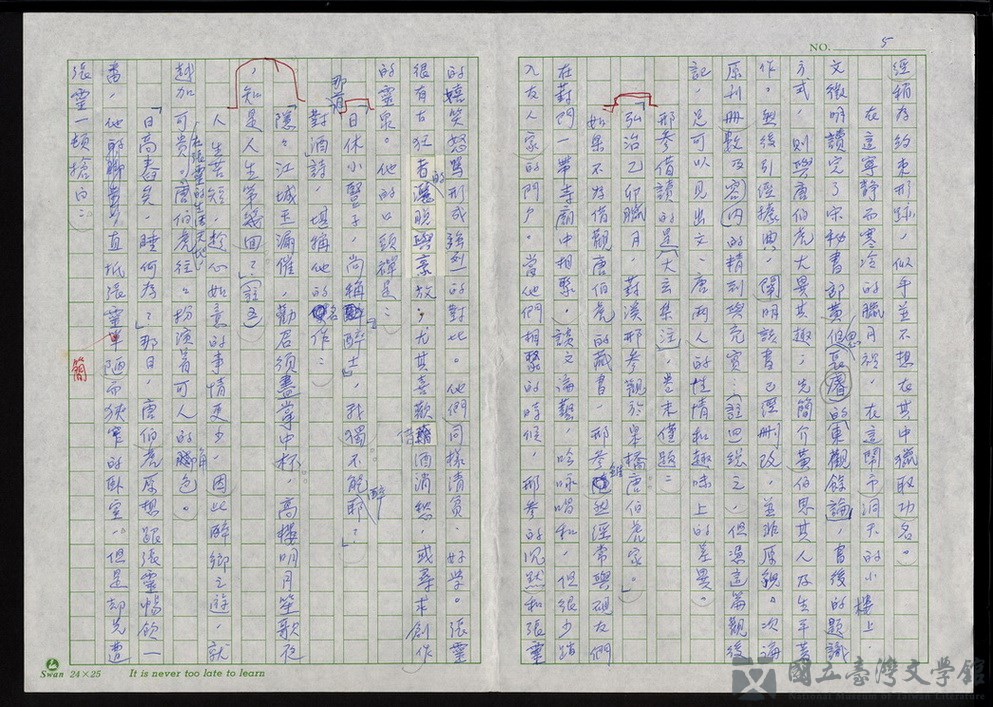 NO. 5
經稍存約束形跡，似乎並不想在其中獵取功名。
在這寧靜而寒冷的臘月裡，在這鬧市洞天的小樓上，
文徵明讀完了宋秘書郎黃伯思長睿的東觀餘論，書後的題識
方式，則與唐伯虎大異其趣；先簡介黃伯思其人及生平著
作。然後引經據典，闡明該書已經刪改，並非原貌。次論
原刊冊數及內容的精到與充實：（註四）總之，但憑這篇觀後
記，足可以見出文、唐兩人的性情和趣味上的差異。
邢參借讀的是六大玄集注，卷末僅題：
「弘治己卯臘月，葑溪邢參觀於皋橋唐伯虎家。」
如果不為借觀唐伯虎的藏書，邢參雖然經常與硯友們
在葑門一帶寺廟中相聚，談文論藝，吟咏唱和，但很少踏
入友人家的門戶。當他們相聚的時候，邢參的沉默和張靈
的嬉笑怒罵形成強烈的對比。他們同樣清貧、好學。張靈
很有古狂者的灑脫與豪放；尤其喜歡借酒消愁，或尋求創作
的靈泉。他的口頭禪是：
「日休小豎子，尚稱醉士，我獨不能醉耶？」
那首對酒詩，堪稱他的名作：
「隱隱江城玉漏催，勸君須盡掌中杯，高樓明月笙歌夜
，知是人生第幾回？」（註五）
人生苦短，趁心如意的事情更少，因此醉鄉之遊，就
越加可貴。在張靈的生活天地，唐伯虎往往扮演著可人的角色。
「日高舂矣，睡何為？」那日，唐伯虎原想跟張靈暢飲一
番，他直抵張靈簡陋而狹窄的臥室。但是却先遭
張靈一頓搶白：
Swan 24×25 It is never too late to learn
國立臺灣文學館
National Museum of Taiwan Literature